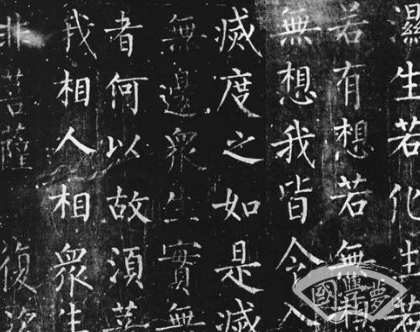 濕生若化生若
若有想若無想
無想我皆令入
滅度之如是滅
無邊眾生實無
者何以故須菩
我相人相眾生
非菩薩 復次
國學夢